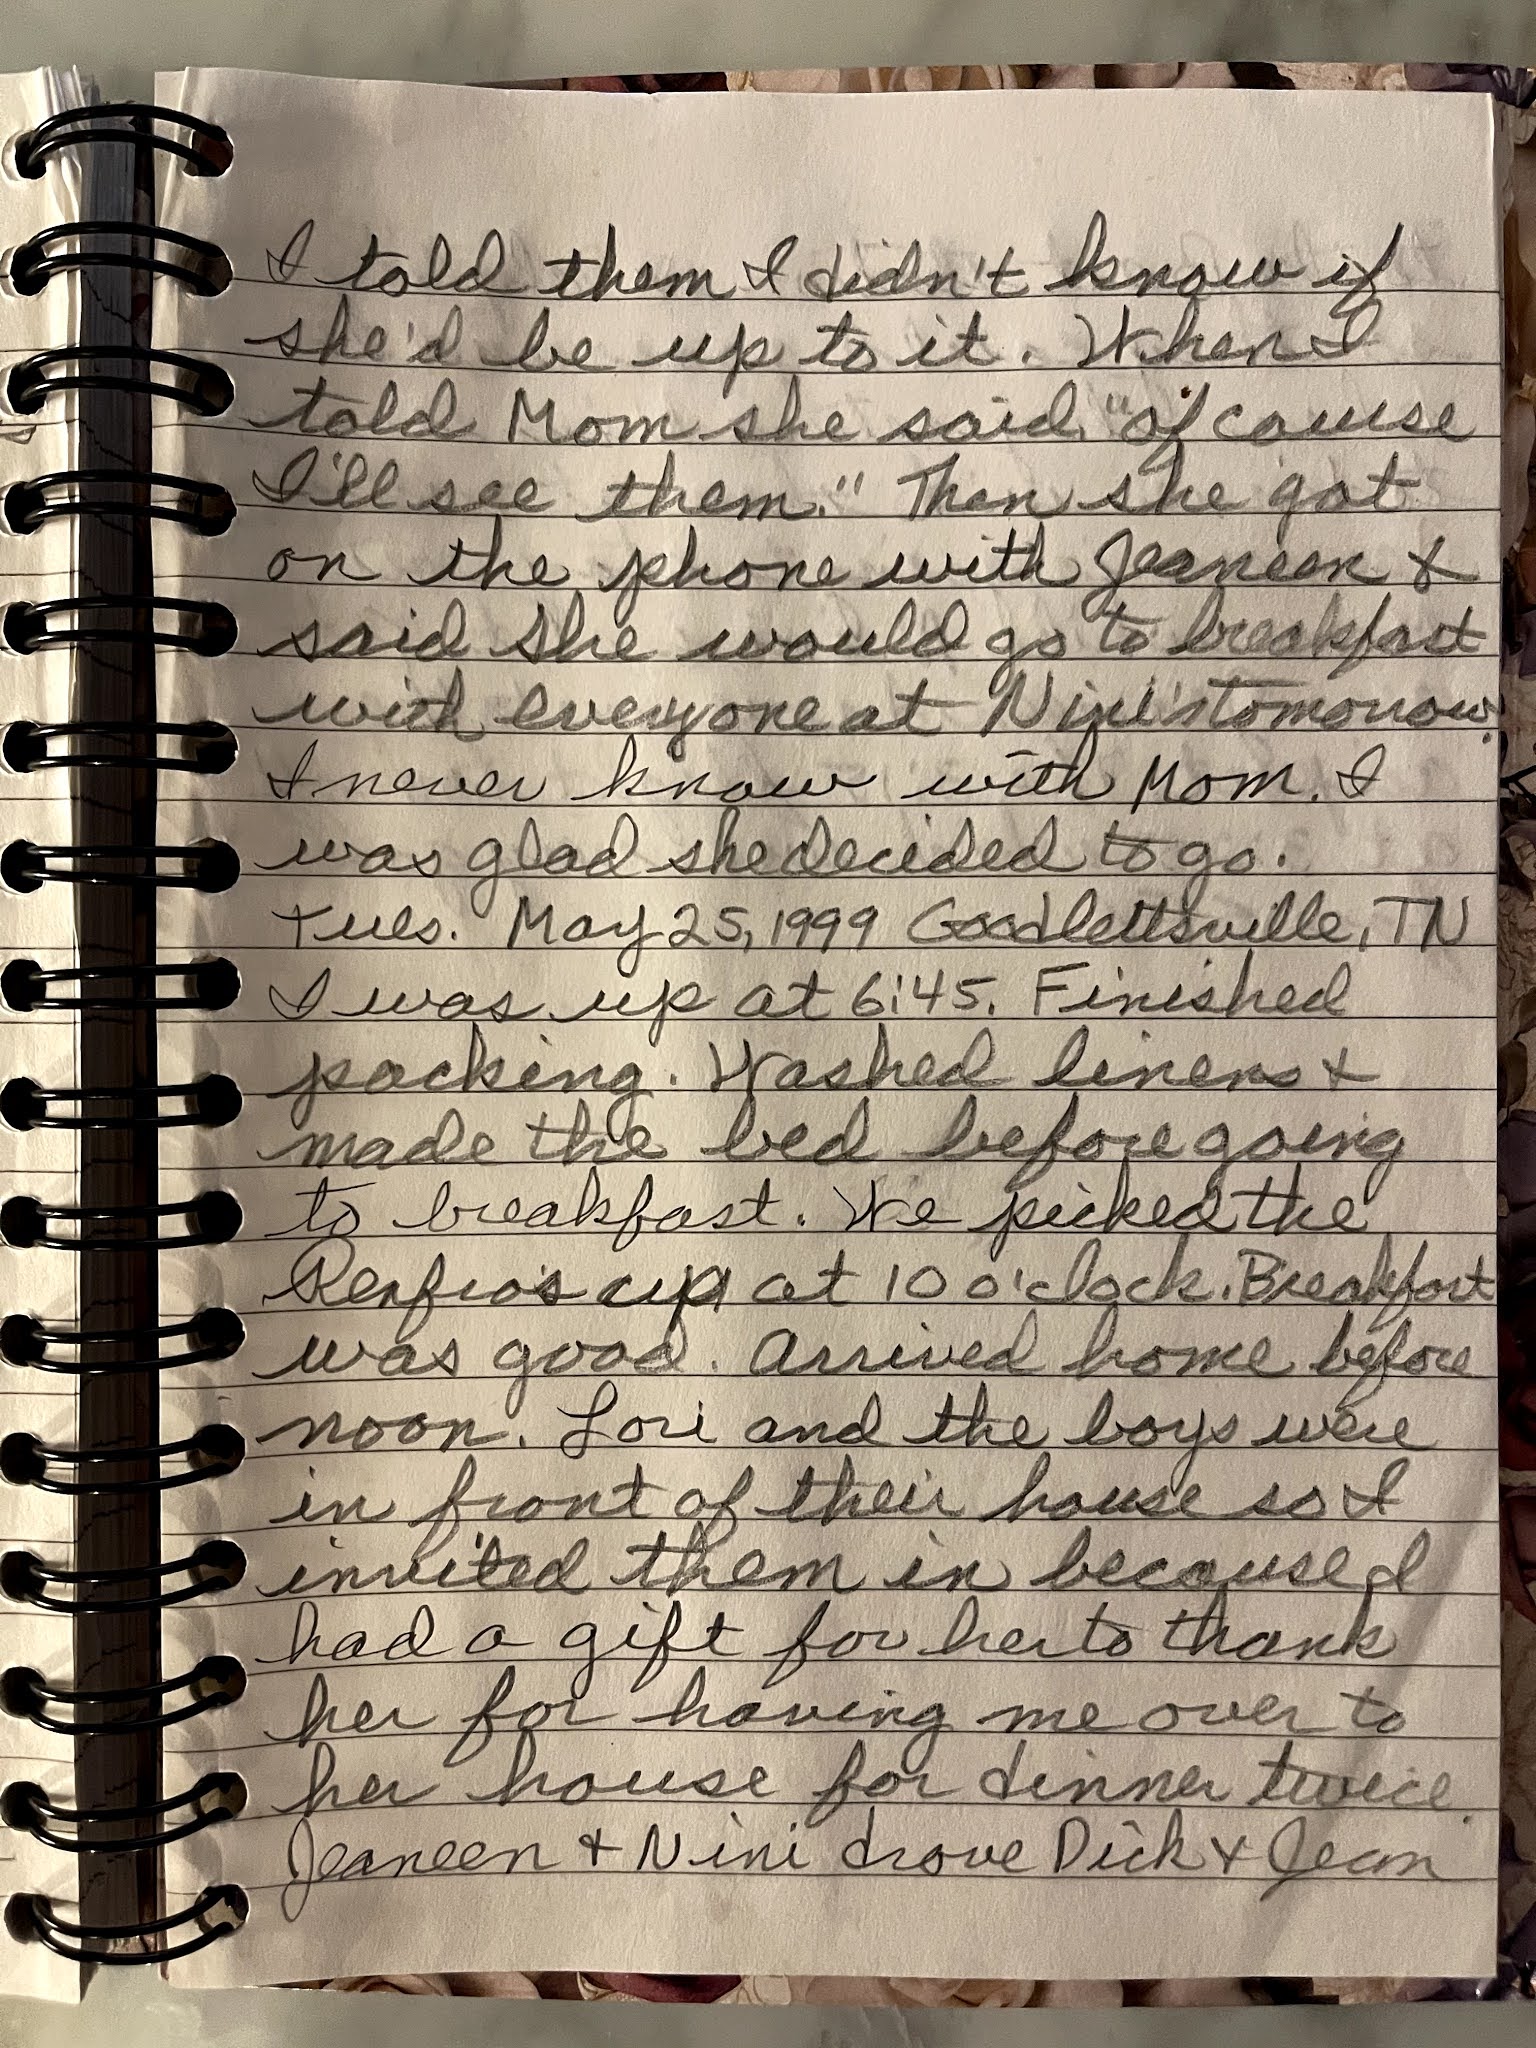 I told them I didn't know if
she'd be up to it. When I
told Mom she said, "of course
I'll see them." Then she got
on the phone with Jeaneen &
said she would go to breakfast
with everyone at Nini's tomorrow.
I never know with Mom. I
was glad she decided to go.
Tues. May 25, 1999 Goodlettsville, TN
I was up at 6:45. Finished
packing. Washed linens &
made the bed before going
to breakfast. We picked the
Renfro's up at 10 o'clock. Breakfast
was good. Arrived home before
noon. Lori and the boys were
in front of their house so I
invited them in because I
had a gift for her to thank
her for having me over to
her house for dinner twice.
Jeaneen & Nini drove Dick & Jean